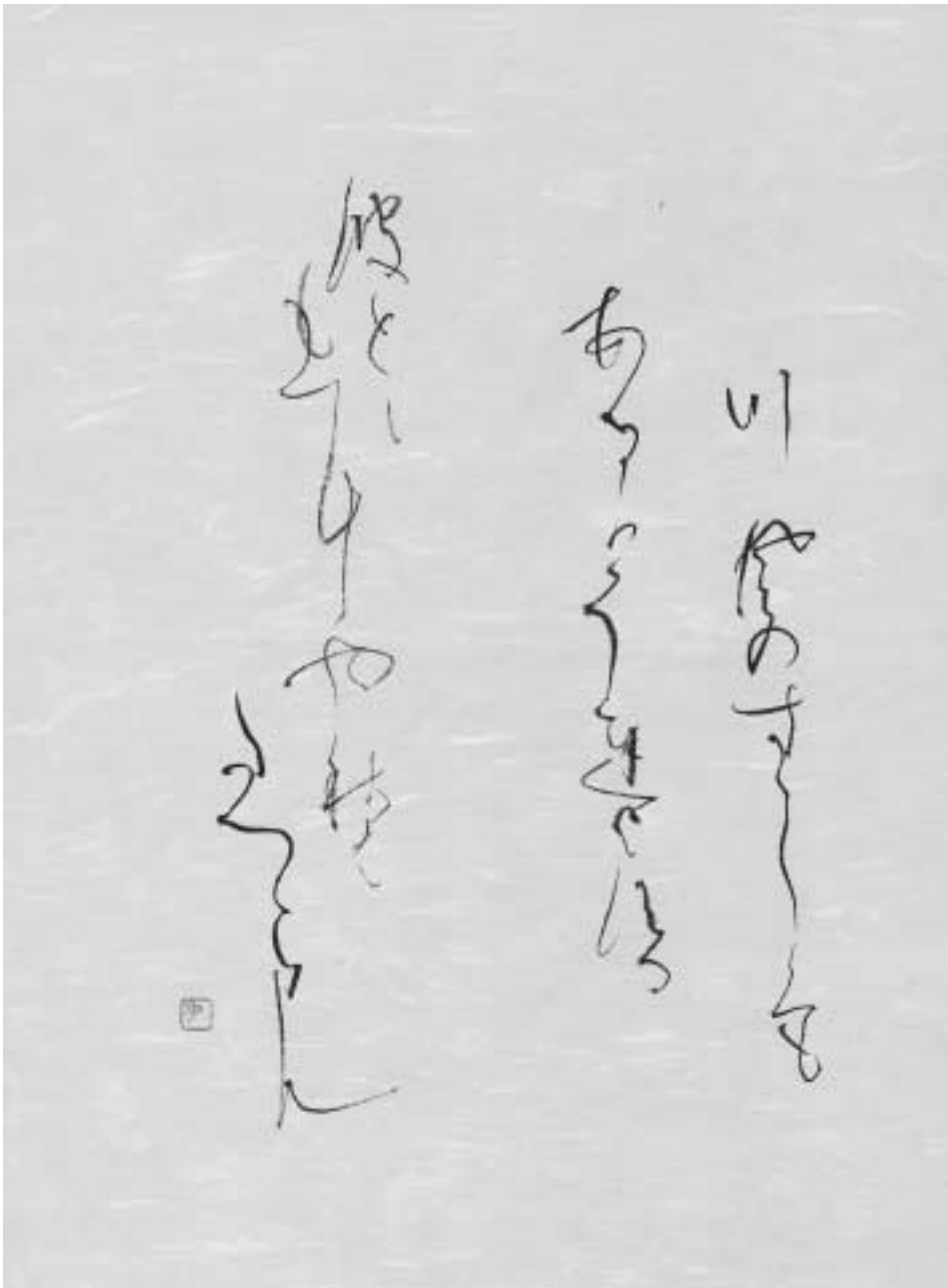 川かぜのすゞしくも
あるかうちよする
波と
ともにや秋は
立つらむ